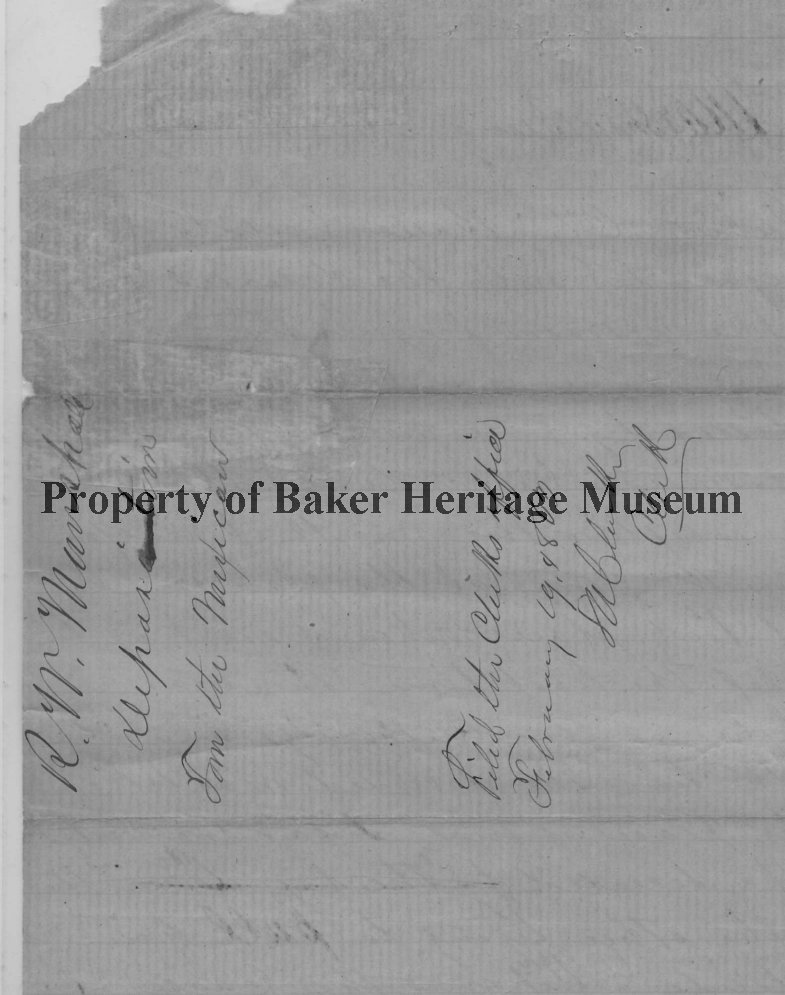 R. W. Marshall
Tom the Mexican
Filed the Clerks office
February 19, 18
Clerk
Property of Baker Heritage Museum